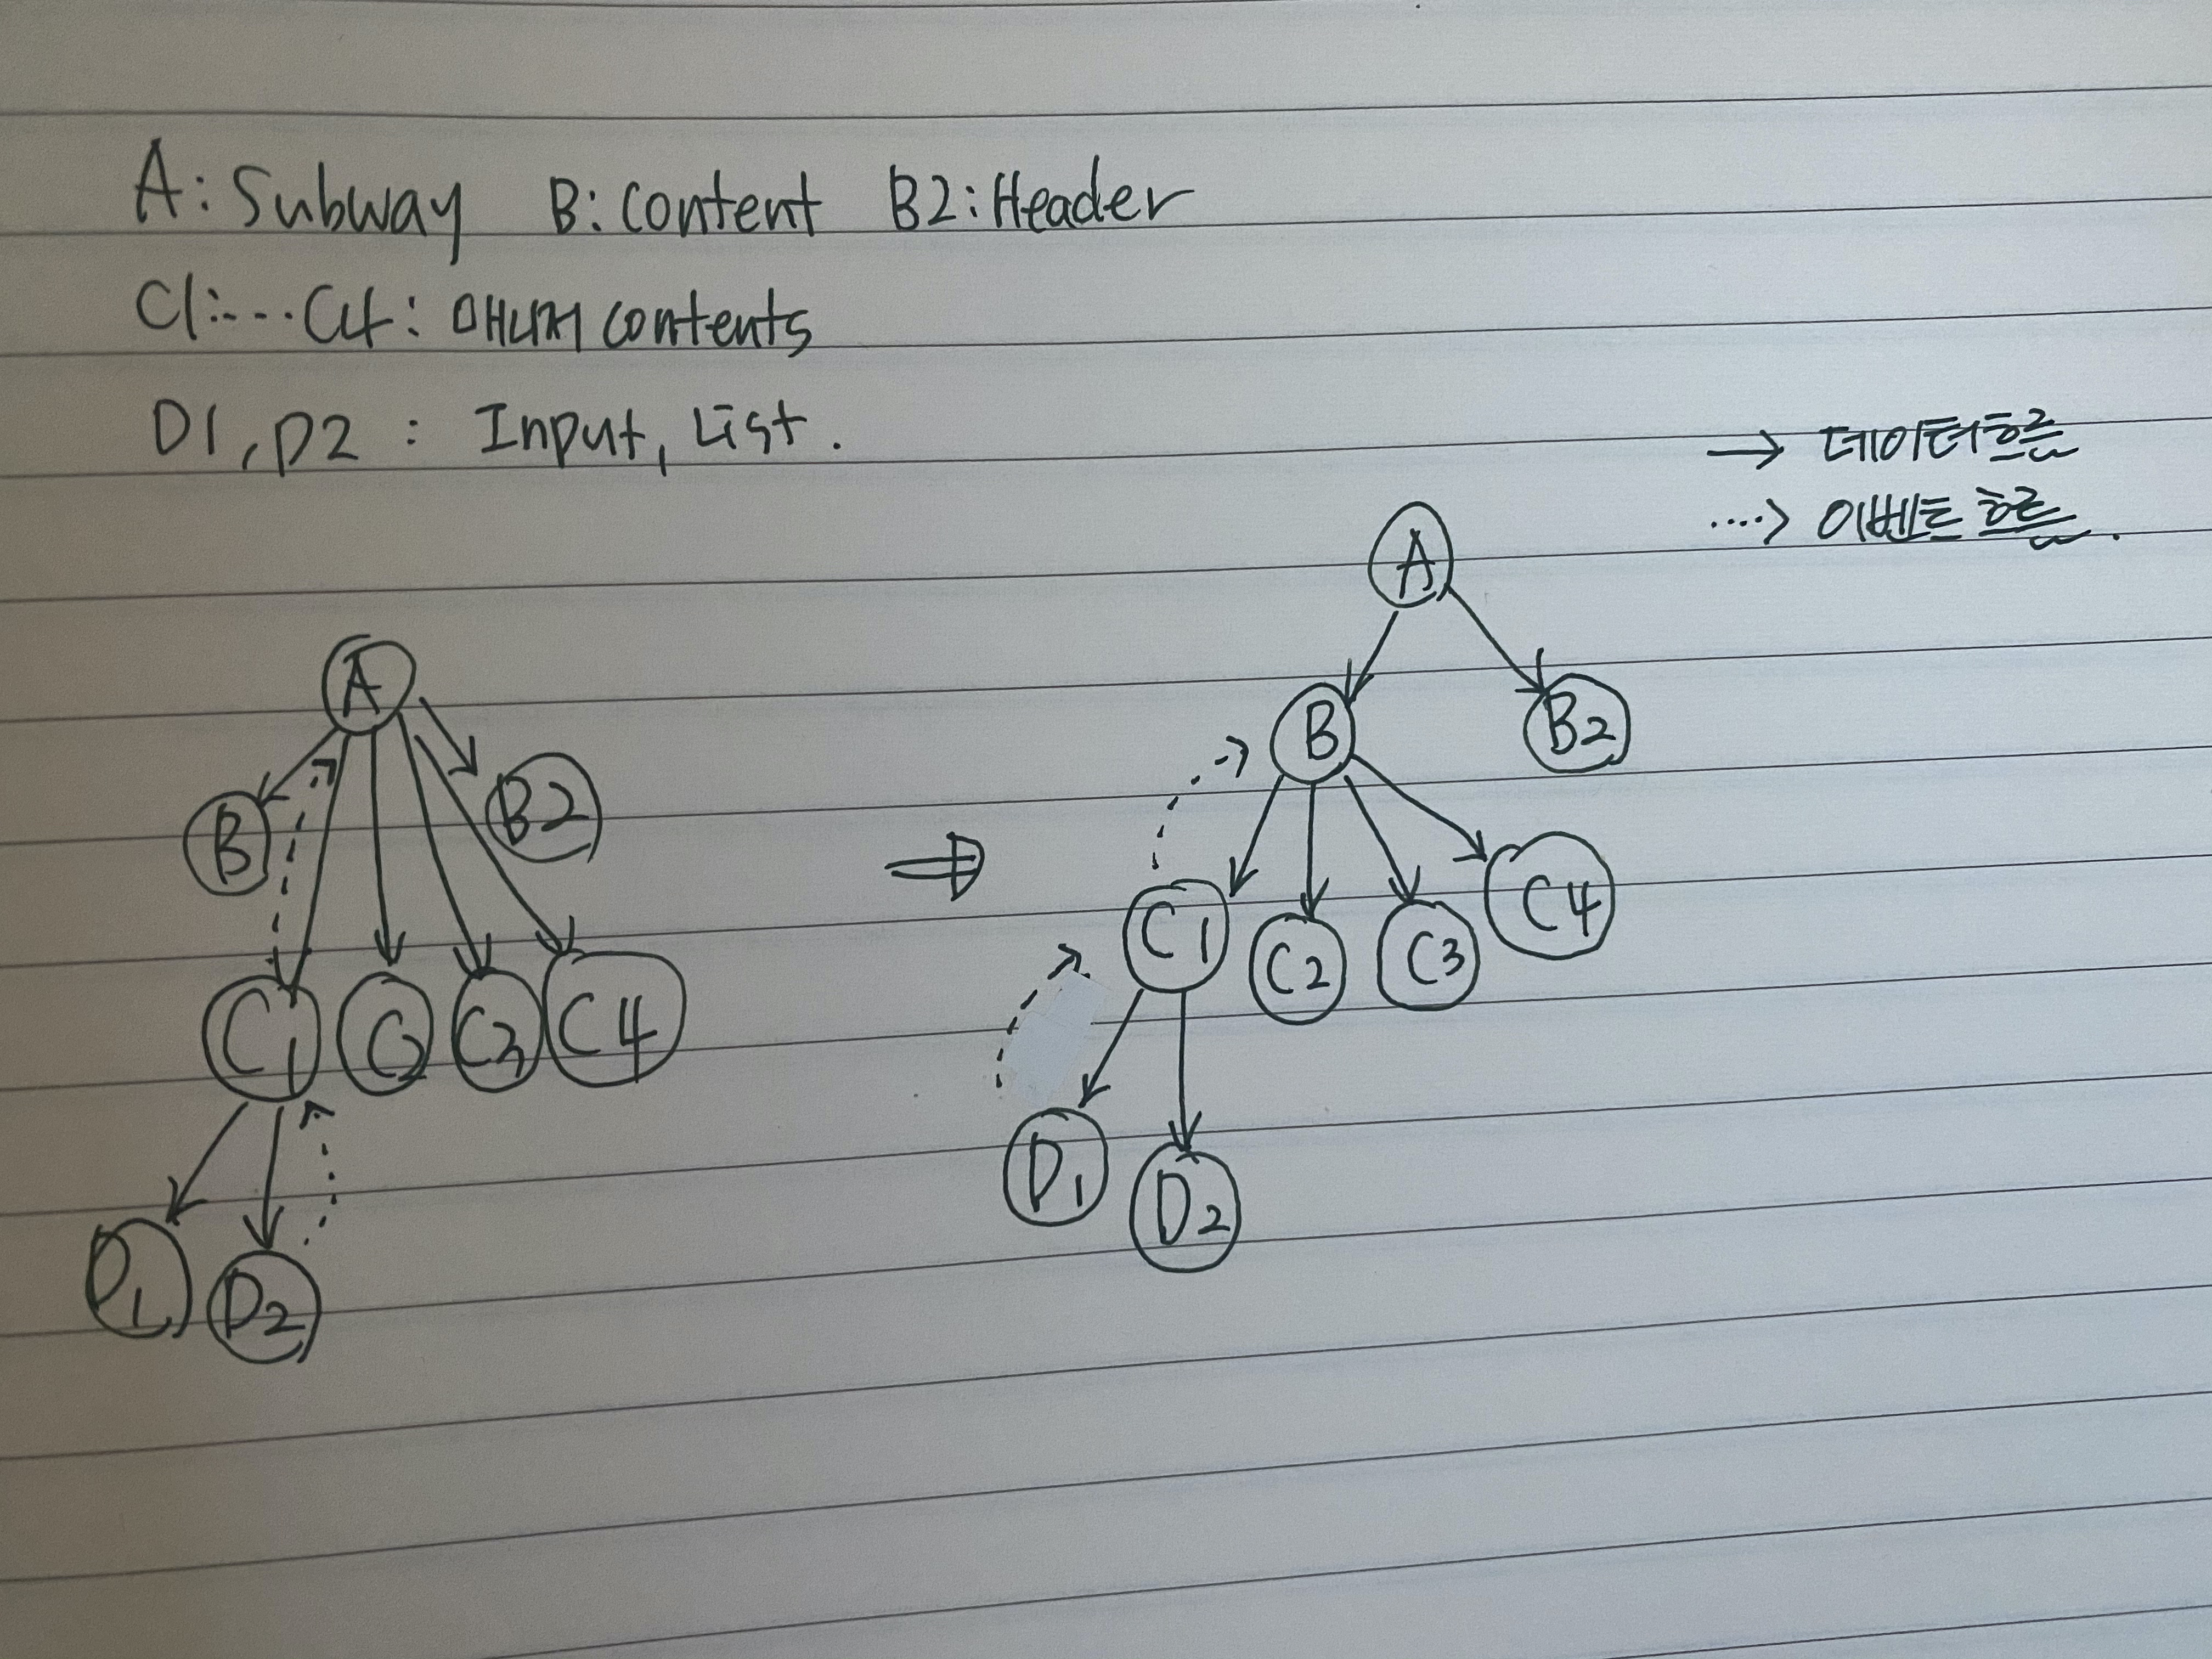 A: Subway B: content B2: Header
C1: ... C4: 메뉴 contents
D1, D2 : Input, List.
→ 데이터 흐름
....> 이벤트 흐름.
A
B
B2
C1
C2
C3
C4
D1
D2
⇒
A
B
B2
C1
C2
C3
C4
D1
D2